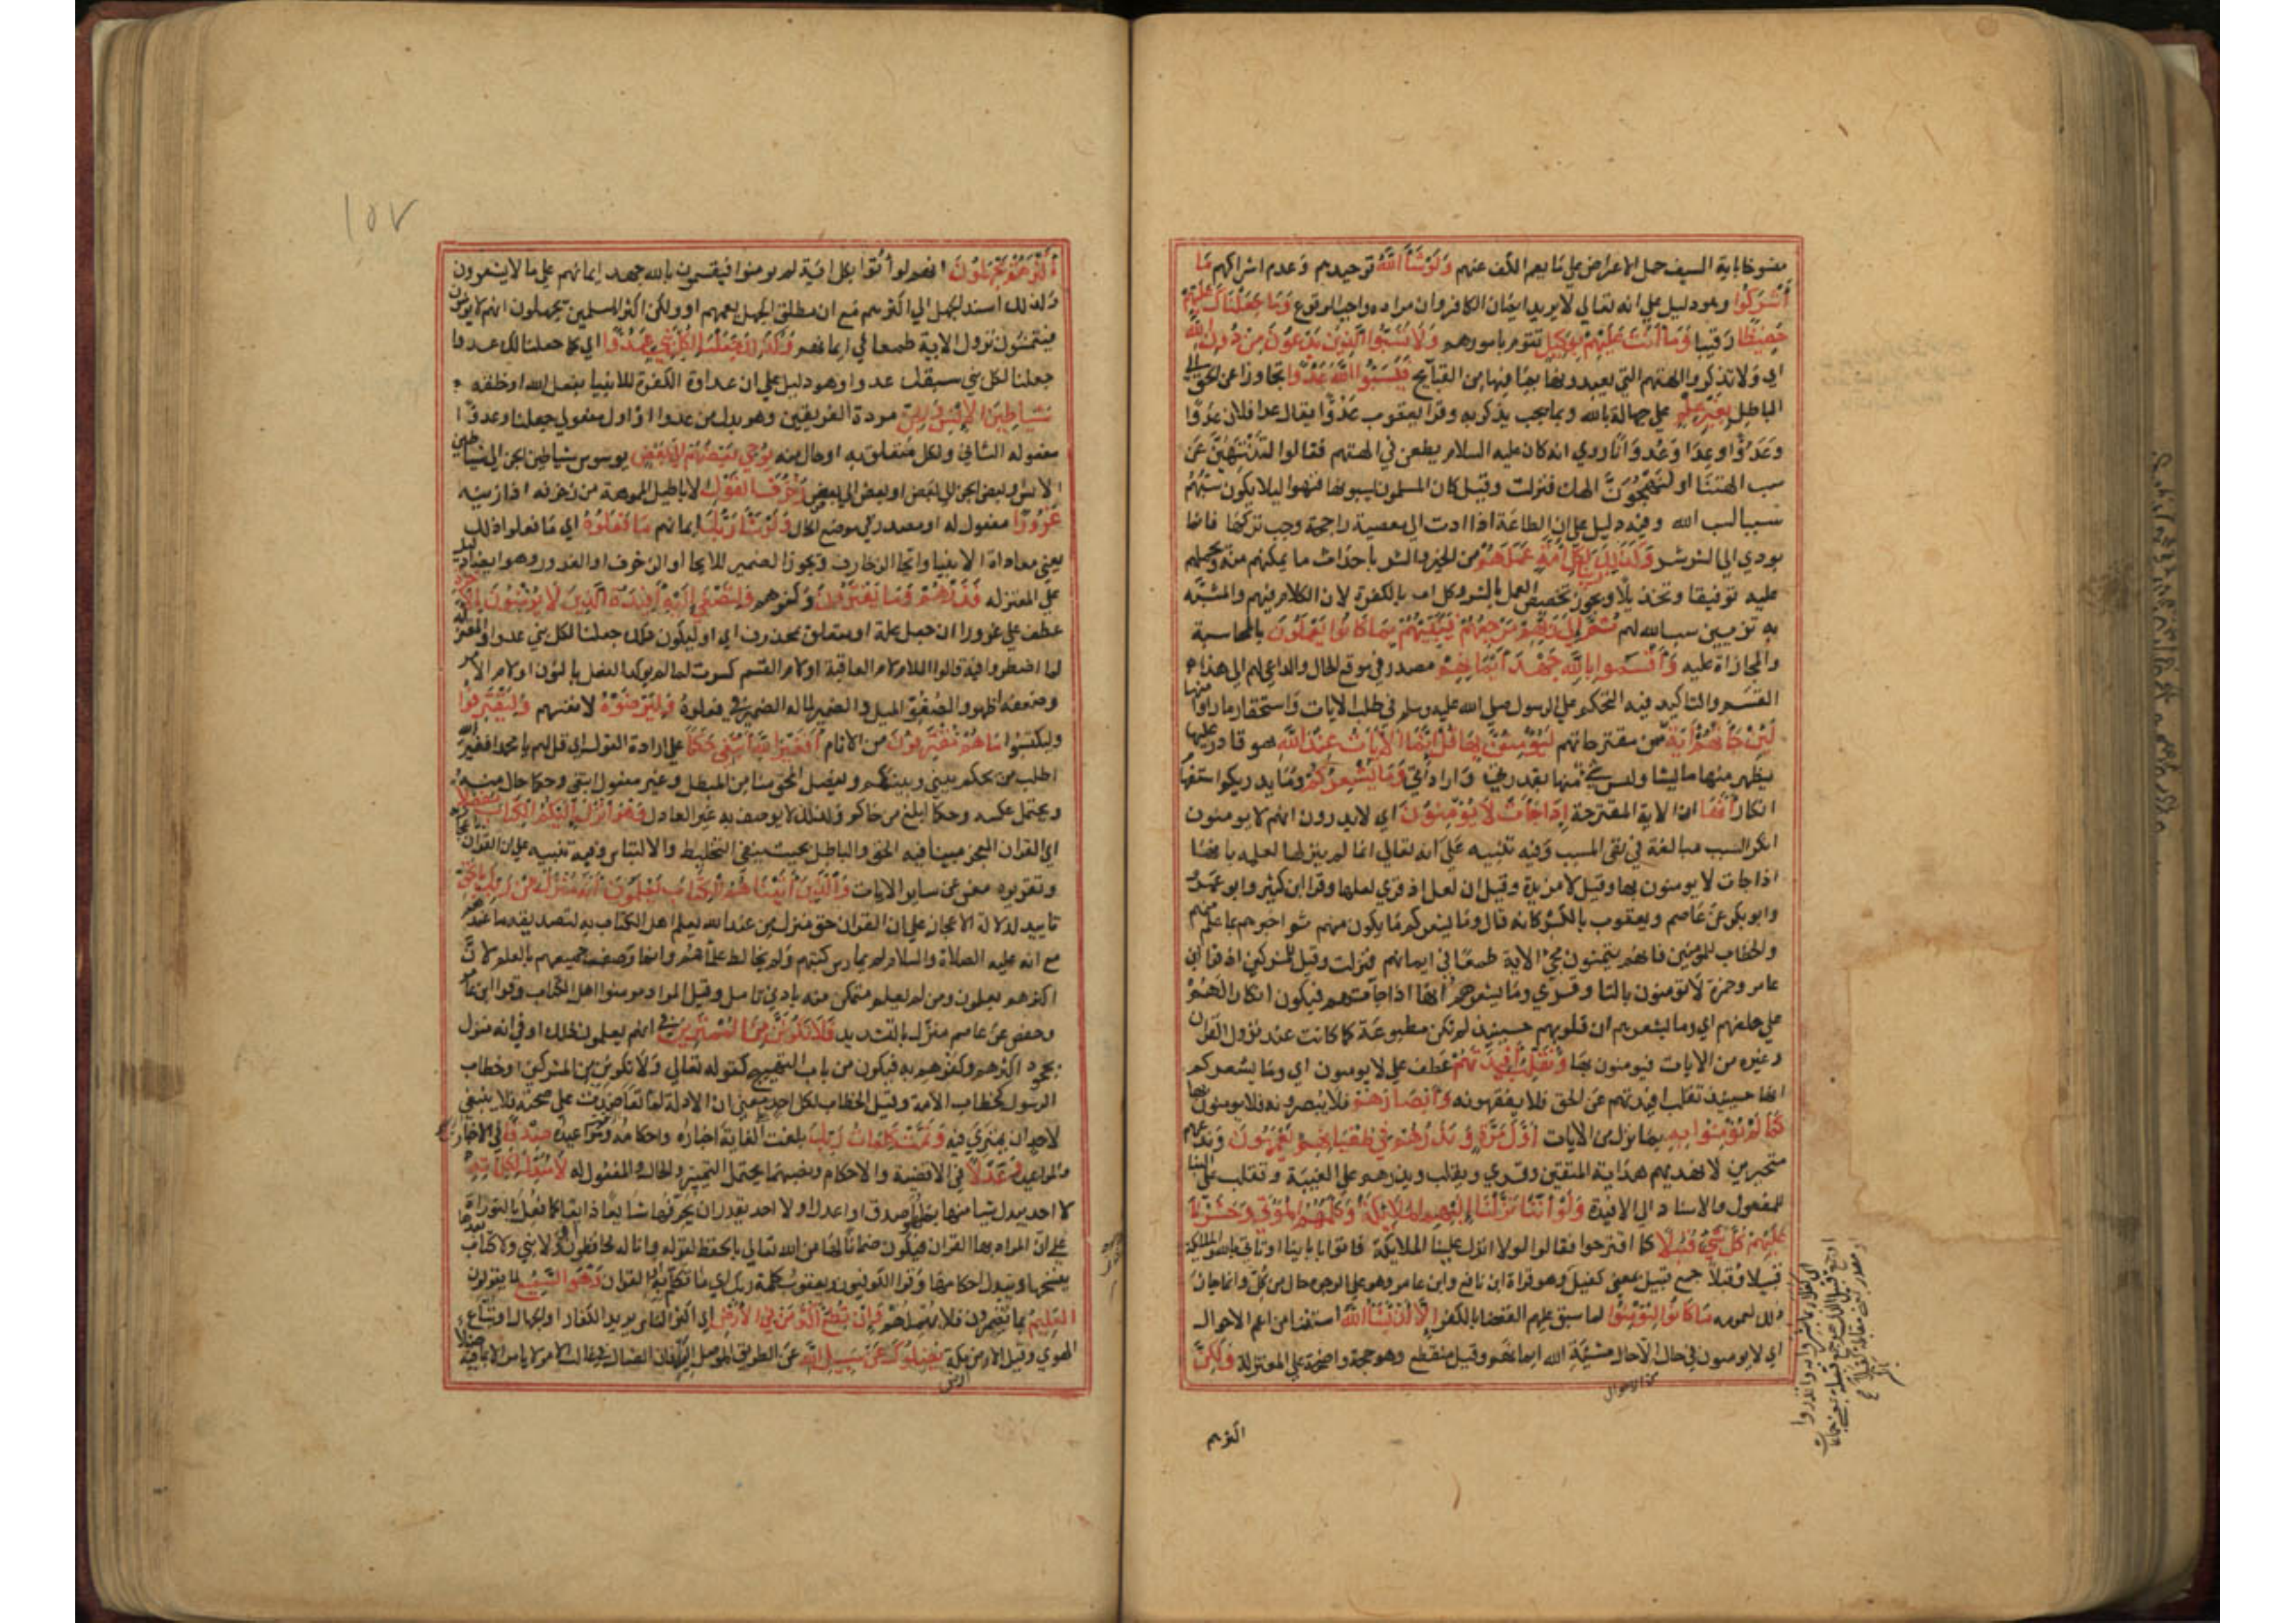 منسوخا باية السيف حمل الاعراض على ما يعم الكف عنهم وَلَوْ شَاءَ اللَّهُ توحيدهم وعدم اشراكهم مَا
أَشْرَكُوا وهو دليل على انه تعالى لا يريد ايمان الكافر وان مراده واجب الوقوع وَمَا جَعَلْنَاكَ عَلَيْهِمْ
حَفِيظًا رقيبا وَمَا أَنْتَ عَلَيْهِمْ بِوَكِيلٍ تقوم بامورهم وَلَا تَسُبُّوا الَّذِينَ يَدْعُونَ مِنْ دُونِ اللَّهِ
اي ولا تذكروا الهتهم التي يعبدونها بما فيها من القبايح فَيَسُبُّوا اللَّهَ عَدْوًا تجاوزا عن الحق الى
الباطل بِغَيْرِ عِلْمٍ على جهالة بالله وبما يجب يذكر به وقرا يعقوب عدوا يقال عدا فلان عدوا
وعدوا وعدا وعدوانا روي انه كان عليه السلام يطعن في الهتهم فقالوا لتنتهين عن
سب الهتنا او لنهجون الهك فنزلت وقيل كان المسلمون يسبونها فنهوا ليلا يكون سبهم
سببا لسب الله وفيه دليل على ان الطاعة اذا ادت الى معصية راجحة وجب تركها فان ما
يودي الى الشر شر وَكَذَلِكَ زَيَّنَّا لِكُلِّ أُمَّةٍ عَمَلَهُمْ من الخير والشر باحداث ما يمكنهم منه ويحملهم
عليه توفيقا وتخذيلا ويجوز تخصيص العمل بالشر وكل امة بالكفرة لان الكلام فيهم والمشبه
به تزيين سب الله لهم ثُمَّ إِلَى رَبِّهِمْ مَرْجِعُهُمْ فَيُنَبِّئُهُمْ بِمَا كَانُوا يَعْمَلُونَ بالمحاسبة
والمجازاة عليه وَأَقْسَمُوا بِاللَّهِ جَهْدَ أَيْمَانِهِمْ مصدر في موقع الحال والداعي لهم الى هذا
القسم والتاكيد فيه التحكم على الرسول صلى الله عليه وسلم في طلب الايات واستحقار ما راوا منها
لَئِنْ جَاءَتْهُمْ آيَةٌ من مقترحاتهم لَيُؤْمِنُنَّ بِهَا قُلْ إِنَّمَا الْآيَاتُ عِنْدَ اللَّهِ هو قادر عليها
يظهر منها ما يشا وليس شي منها بقدرتي وارادتي وَمَا يُشْعِرُكُمْ وما يدريكم استفهام
انكار أَنَّهَا ان الاية المقترحة إِذَا جَاءَتْ لَا يُؤْمِنُونَ اي لا يدرون انهم لا يومنون
انكر السبب مبالغة في نفي المسبب وفيه تنبيه على انه تعالى انما لم ينزلها لعلمه بانها
اذا جات لا يومنون بها وقيل لا مزيدة وقيل ان لعل اذ قري لعلها وقرا ابن كثير وابو عمرو
وابو بكر عن عاصم ويعقوب بالكسر كانه قال وما يشعركم ما يكون منهم ثم اخبرهم بما علم منهم
والخطاب للمومنين فانهم يتمنون مجي الاية طمعا في ايمانهم فنزلت وقيل للمشركين اذ قرا ابن
عامر وحمزة لا تومنون بالتا وقري وما يشعرهم انها اذا جاتهم فيكون انكارا لهم
على حلفهم اي وما يشعرهم ان قلوبهم حينيذ لم تكن مطبوعة كما كانت عند نزول القران
وغيره من الايات فيومنون بها وَنُقَلِّبُ أَفْئِدَتَهُمْ عطف على لا يومنون اي وما يشعركم
انها حينيذ تقلب افيدتهم عن الحق فلا يفقهونه وَأَبْصَارَهُمْ فلا يبصرونه فلا يومنون بها
كَمَا لَمْ يُؤْمِنُوا بِهِ بما نزل من الايات أَوَّلَ مَرَّةٍ وَنَذَرُهُمْ فِي طُغْيَانِهِمْ يَعْمَهُونَ وندعهم
متحيرين لا نهديهم هداية المتقين وقري ويقلب ويذرهم على الغيبة وتقلب على البنا
للمفعول والاسناد الى الافيدة وَلَوْ أَنَّنَا نَزَّلْنَا إِلَيْهِمُ الْمَلَائِكَةَ وَكَلَّمَهُمُ الْمَوْتَى وَحَشَرْنَا
عَلَيْهِمْ كُلَّ شَيْءٍ قُبُلًا كما اقترحوا فقالوا لولا انزل علينا الملايكة فاتوا باباينا او تاتي بالله والملايكة
قبيلا وقبلا جمع قبيل بمعنى كفيل وهو قراة ابن نافع وابن عامر وهو على الوجوه حال من كل وانما جاز
ذلك لعمومه مَا كَانُوا لِيُؤْمِنُوا لما سبق عليهم القضا بالكفر إِلَّا أَنْ يَشَاءَ اللَّهُ استثنا من اعم الاحوال
اي لا يومنون في حال الا حال مشية الله ايمانهم وقيل منقطع وهو حجة واضحة على المعتزلة وَلَكِنَّ
من الاحوال
اكثرهم
١٥٧
أَكْثَرَهُمْ يَجْهَلُونَ انهم لو أتوا بكل اية لم يومنوا فيقسمون بالله جهد ايمانهم على ما لا يشعرون
ولذلك اسند الجهل الى اكثرهم مع ان مطلق الجهل يعمهم او ولكن اكثر المسلمين يجهلون انهم لا يومنون
فيتمنون نزول الاية طمعا في ايمانهم وَكَذَلِكَ جَعَلْنَا لِكُلِّ نَبِيٍّ عَدُوًّا اي كما جعلنا لك عدوا
جعلنا لكل نبي سبقك عدوا وهو دليل على ان عداوة الكفرة للانبيا بفعل الله او خلقه
شَيَاطِينَ الْإِنْسِ وَالْجِنِّ مردة الفريقين وهو بدل من عدوا او اول مفعولي جعلنا وعدوا
مفعوله الثاني ولكل متعلق به او حال منه يُوحِي بَعْضُهُمْ إِلَى بَعْضٍ يوسوس شياطين الجن الى شياطين
الانس او بعض الجن الى بعض او بعض الى بعض زُخْرُفَ الْقَوْلِ الاباطيل المموهة من زخرفه اذا زينه
غُرُورًا مفعول له او مصدر في موضع الحال وَلَوْ شَاءَ رَبُّكَ ايمانهم مَا فَعَلُوهُ اي ما فعلوا ذلك
يعني معاداة الانبيا وايحا الزخارف ويجوز الضمير للايحا او الزخرف او الغرور وهو ايضا دليل
على المعتزلة فَذَرْهُمْ وَمَا يَفْتَرُونَ وكفرهم وَلِتَصْغَى إِلَيْهِ أَفْئِدَةُ الَّذِينَ لَا يُؤْمِنُونَ بِالْآخِرَةِ
عطف على غرورا ان جعل علة او متعلق بمحذوف اي او ليكون ذلك جعلنا لكل نبي عدوا والمعتزلة
لما اضطروا فيه قالوا اللام لام العاقبة او لام القسم كسرت لما لم يوكد الفعل بالنون او لام الامر
وضعفه اظهر والصغو الميل والضمير لما له الضمير في فعلوه وَلِيَرْضَوْهُ لانفسهم وَلِيَقْتَرِفُوا
وليكتسبوا مَا هُمْ مُقْتَرِفُونَ من الاثام أَفَغَيْرَ اللَّهِ أَبْتَغِي حَكَمًا على ارادة القول اي قل لهم يا محمد افغير الله
اطلب من يحكم بيني وبينكم ويفصل المحق منا من المبطل وغير مفعول ابتغي وحكما حال منه
ويحتمل عكسه وحكما ابلغ من حاكم ولذلك لا يوصف به غير العادل وَهُوَ الَّذِي أَنْزَلَ إِلَيْكُمُ الْكِتَابَ مُفَصَّلًا
اي القران المعجز مبينا فيه الحق والباطل بحيث ينفي التخليط والالتباس وفيه تنبيه على ان القران
وتقريره مغن عن ساير الايات وَالَّذِينَ آتَيْنَاهُمُ الْكِتَابَ يَعْلَمُونَ أَنَّهُ مُنَزَّلٌ مِنْ رَبِّكَ بِالْحَقِّ
تاييد لدلالة الاعجاز على ان القران حق منزل من عند الله يعلم اهل الكتاب به لتصديقه ما عندهم
مع انه عليه الصلاة والسلام لم يمارس كتبهم ولم يخالط علماهم وانما وصف جميعهم بالعلم لان
اكثرهم يعلمون ومن لم يعلم متمكن منه بادنى تامل وقيل المراد مومنوا اهل الكتاب وقرا ابن عامر
وحفص عن عاصم منزل بالتشديد فَلَا تَكُونَنَّ مِنَ الْمُمْتَرِينَ في انهم يعلمون ذلك او في انه منزل
بجحود اكثرهم وكفرهم به فيكون من باب التهييج كقوله تعالى ولا تكونن من المشركين او خطاب
الرسول كخطاب الامة وقيل الخطاب لكل احد بمعنى ان الادلة لما تعاضدت على صحته فلا ينبغي
لاحد ان يمتري فيه وَتَمَّتْ كَلِمَاتُ رَبِّكَ بلغت الغاية اخباره واحكامه ومواعيده صِدْقًا في الاخبار
والمواعيد وَعَدْلًا في الاقضية والاحكام ونصبهما يحتمل التمييز والحال والمفعول له لَا مُبَدِّلَ لِكَلِمَاتِهِ
لا احد يبدل شيا منها بما هو اصدق او اعدل او لا احد يقدر ان يحرفها شايعا ذايعا كما فعل بالتوراة
على ان المراد بها القران فيكون ضمانا لها من الله تعالى بالحفظ لقوله وانا له لحافظون او لا نبي ولا كتاب بعدها
ينسخها ويبدل احكامها وقرا الكوفيون ويعقوب كلمة ربك اي ما تكلم به او القران وَهُوَ السَّمِيعُ لما يقولون
الْعَلِيمُ بما يضمرون فلا يهملهم وَإِنْ تُطِعْ أَكْثَرَ مَنْ فِي الْأَرْضِ اي اكثر الناس يريد الكفار او الجهال او تباع
الهوى وقيل الارض مكة يُضِلُّوكَ عَنْ سَبِيلِ اللَّهِ عن الطريق الموصل اليه فان الضال في غالب الامر لا يامر الا بما فيه ضلال
ارض